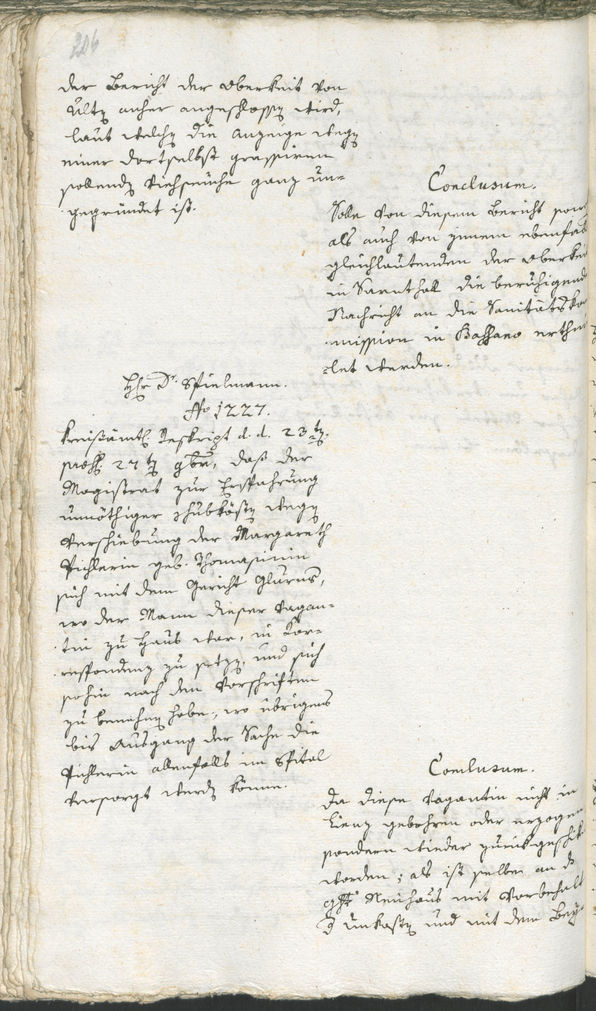 206
der Bericht der Oberkeit von
Ultn anher angeschlossn wird,
laut welchn die Anzeige wegn
einer dortselbst grassiren
sollendn Viehseuche ganz un-
gegründet ist.
Conclusum.
Solle von diesem Bericht sow
als auch von jenem ebenfal
gleichlautenden der Oberkei
in Sarnthall die beruhigende
Nachricht an die Sanitäts Ko
mission in Bassano erthei
let werden.
Hr Dr. Spielmann.
No 1227.
Kreisämtl. Reskript d. d. 23tn
27tn 9br, daß der
Magistrat zur Ersparung
unnöthiger wegn
Verschiebung der Margareth
Pichlerin geb. Thomasinin
sich mit dem Gericht Glurns,
wo der Mann dieser Vagan-
tin zu Haus war, in Kor-
respondenz zu setzn, und sich
sohin nach den Vorschriften
zu benehmen habe, wo übrigens
bis Ausgang der Sache die
Pichlerin allenfalls im Spital
versorgt werdn könne.
Conclusum.
Da diese Vagantin nicht in
Lienz gebohren oder erzogen
sondern wieder zurückgeschik
worden; als ist selbe an d
Neuhaus mit Vorbehalt
Unkostn und mit dem Bey